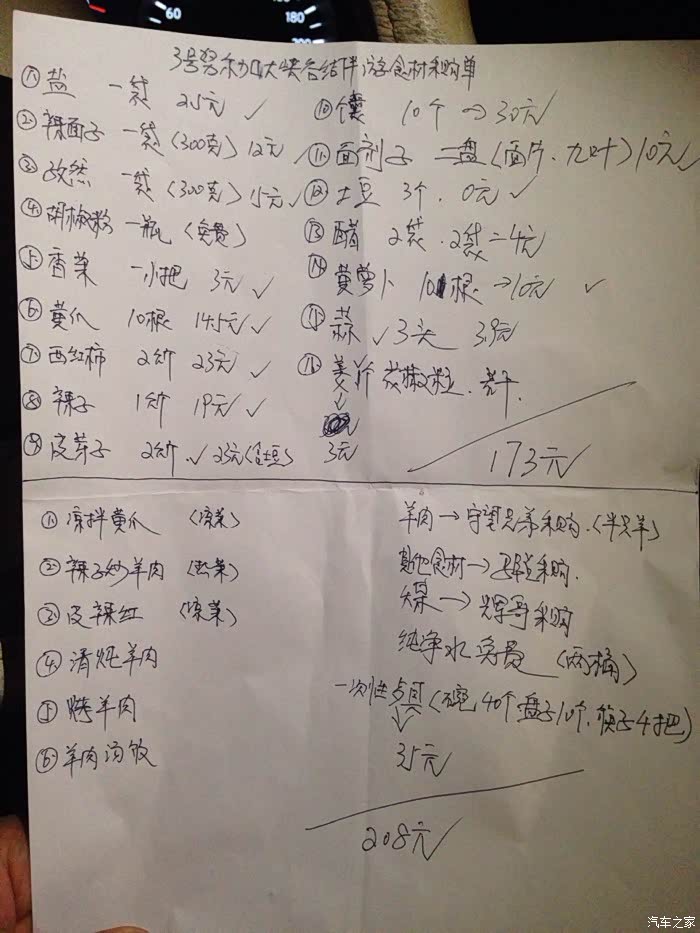 60
180
200
3号努尔加大峡谷结伴游食材采购单
① 盐 一袋 2.5元 ✓
② 辣面子 一袋(300克) 12元 ✓
③ 孜然 一袋(300克) 15元 ✓
④ 胡椒粉 一瓶 (免费)
⑤ 香菜 一小把 3元 ✓
⑥ 黄瓜 10根 14.5元 ✓
⑦ 西红柿 2公斤 23元 ✓
⑧ 辣子 1公斤 19元 ✓
⑨ 皮芽子 2公斤 ✓ 23元(含土豆)
⑩ 馕 10个 → 30元 ✓
⑪ 面剂子 二盘(面片、九叶) 10元 ✓
⑫ 土豆 3个. 0元 ✓
⑬ 醋 2袋. 2袋=4元
⑭ 黄萝卜 10根 → 10元 ✓
⑮ 蒜 ✓ 3头 3.9元
⑯ 姜、花椒粒.
3元
173元
① 凉拌黄瓜 (凉菜)
② 辣子炒羊肉 (热菜)
③ 皮辣红 (凉菜)
④ 清炖羊肉
⑤ 烤羊肉
⑥ 羊肉汤饭
羊肉 → 守望兄弟采购.(半只羊)
其他食材 → 采购.
大煤 → 辉哥采购
纯净水 免费 (两桶)
一次性桌具(碗40个 盘子10个、筷子4把)
35元
208元
汽车之家